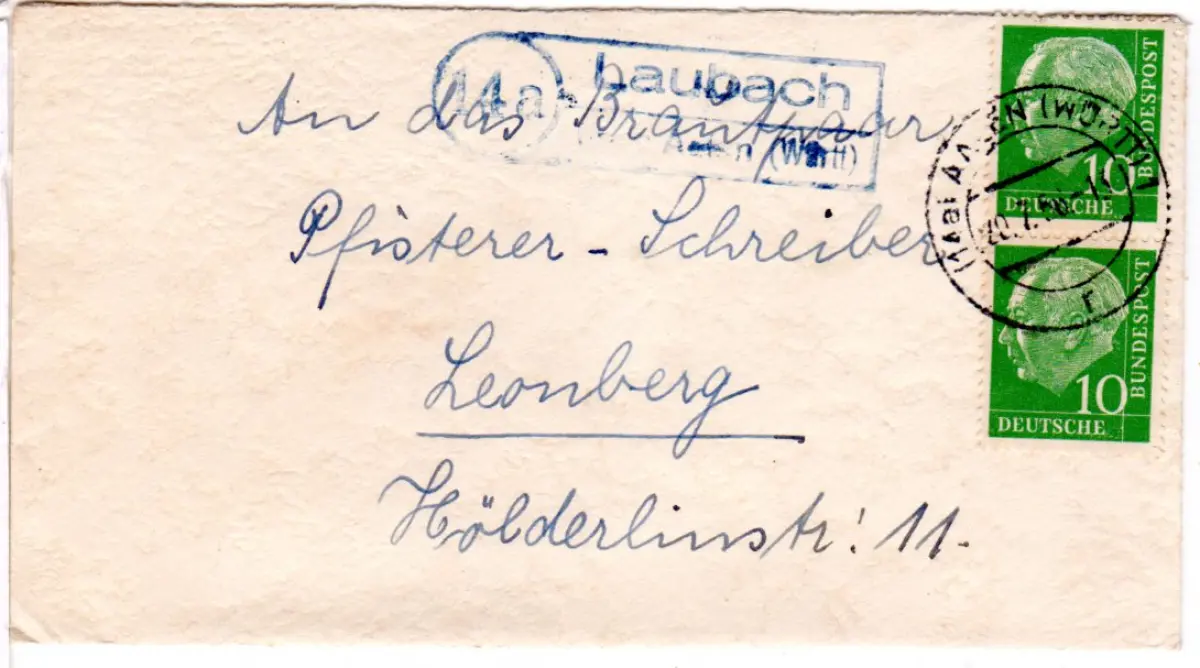 14a Laubach
Aalen (Württ)
An das Brautpaar
Pfisterer - Schreiber
Leonberg
Hölderlinstr. 11.
10
DEUTSCHE
BUNDESPOST
AALEN (WÜRTT)
20.7.
r
10
DEUTSCHE
BUNDESPOST